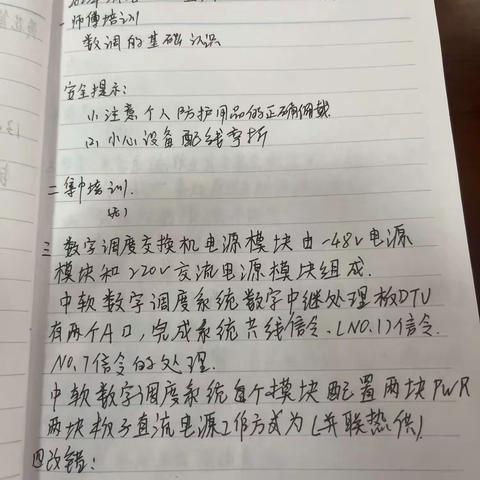 一师傅培训
数调的基础认识
安全提示:
(1) 注意个人防护用品的正确佩戴
(2) 小心设备配线弯折
二集中培训.
(无)
三 数字调度交换机电源模块由-48v电源
模块和220v交流电源模块组成.
中软数字调度系统数字中继处理板DTU
有两个A口,完成系统共线信令、(NO.1)信令.
NO.7信令的处理.
中软数字调度系统每个模块配置两块PWR
两块板子直流电源工作方式为(并联热供)
四改错: